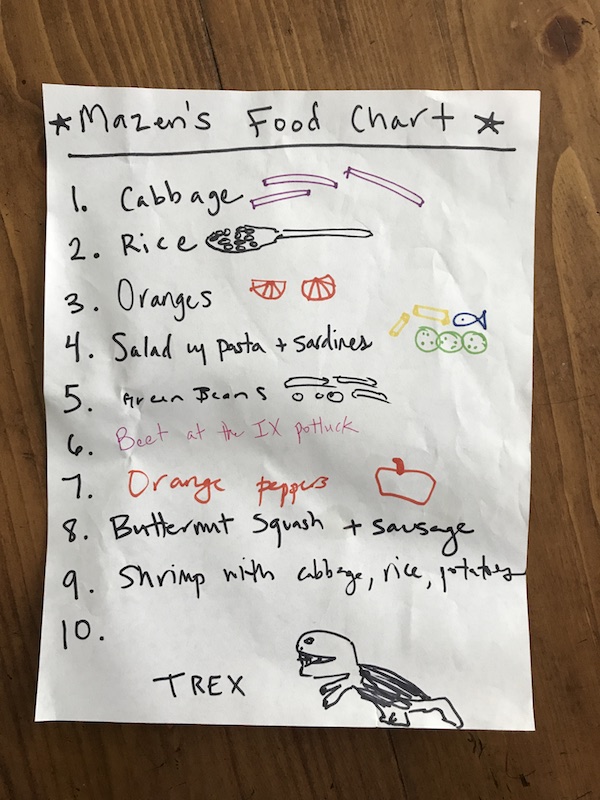 ★ Mazen's Food Chart ★
1. Cabbage
2. Rice
3. Oranges
4. Salad w/ pasta + sardines
5. Green Beans
6. Beet at the IX potluck
7. Orange peppers
8. Butternut Squash + sausage
9. Shrimp with cabbage, rice, potatoes
10.
TREX